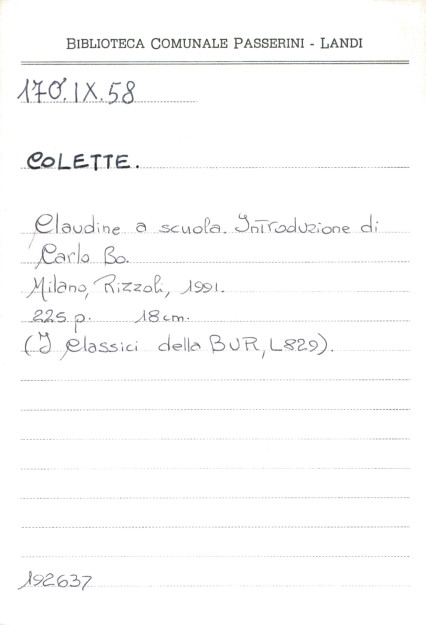 BIBLIOTECA COMUNALE PASSERINI - LANDI
170.IX.58
COLETTE.
Claudine a scuola. Introduzione di
Carlo Bo.
Milano, Rizzoli, 1991.
225 p. 18 cm.
(I Classici della BUR, L829).
192637